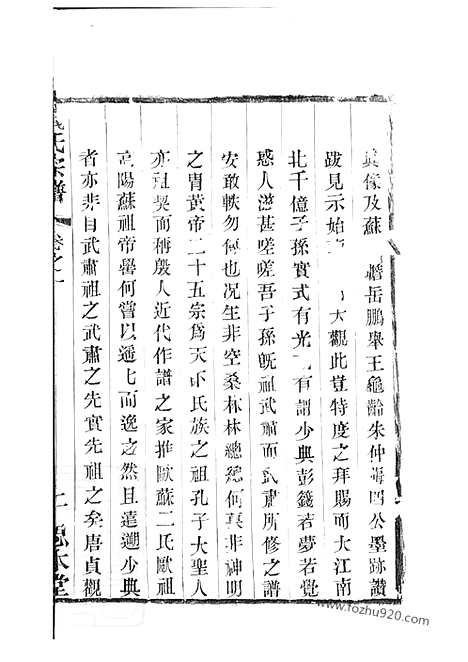 真像及蘇 嶽岳鵬舉王龜齡朱仲晦四公墨跡讚
跋見示始 大觀此豈特度之拜賜而大江南
北千億子孫實式有光 有謂少典彭籛若夢若覺
惑人滋甚嗟嗟吾子孫旣祖武肅而武肅所修之譜
安敢軼勿何也况生非空桑林林總總何莫非神明
之冑黃帝二十五宗爲天下氏族之祖孔子大聖人
亦祖契而稱殷人近代作譜之家推歐蘇二氏歐祖
高陽蘇祖帝嚳何嘗以遞七而逸之然且遠溯少典
者亦非自武肅祖之武肅之先實先祖之矣唐貞觀
氏宗譜
卷之一
堂
www.fozhu920.com